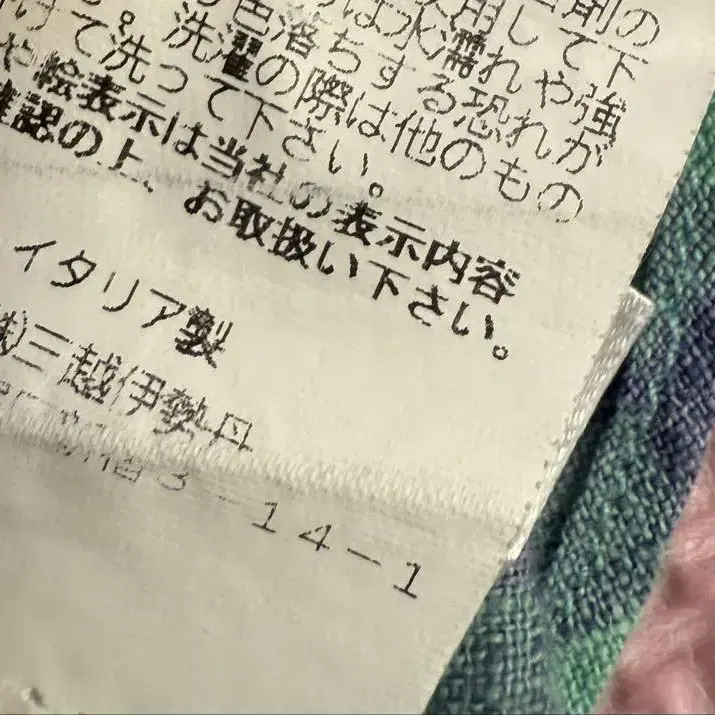 剤の
用して下
は水濡れや強
色落ちする恐れが
洗濯の際は他のもの
けて洗って下さい。
や絵表示は当社の表示内容
確認の上、お取扱い下さい。
イタリア製
㈱三越伊勢丹
新宿3-14-1